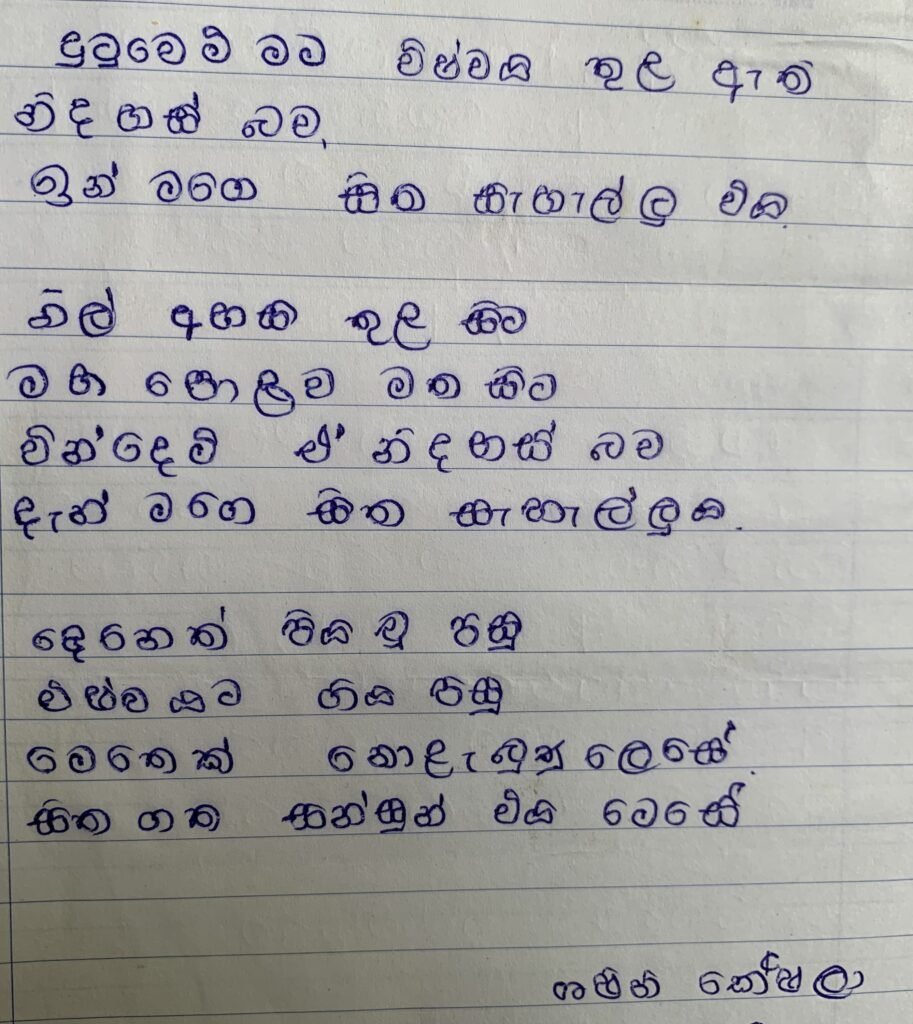 දුටුමෙමි මම විෂ්වය තුළ ඇති
නිදහස් බව,
ඉන් මගෙ සිත සැහැල්ලු විය.
නිල් අහස තුළ සිට
මහ පොළව මත සිට
වින්දෙමි ඒ නිදහස් බව
දැන් මගෙ සිත සැහැල්ලුය.
දෙනෙත් පියවූ පසු
විෂ්වයට ගිය පසු
මෙතෙක් නොළැබුණු ලෙසේ.
සිත ගත සන්සුන් විය මෙසේ